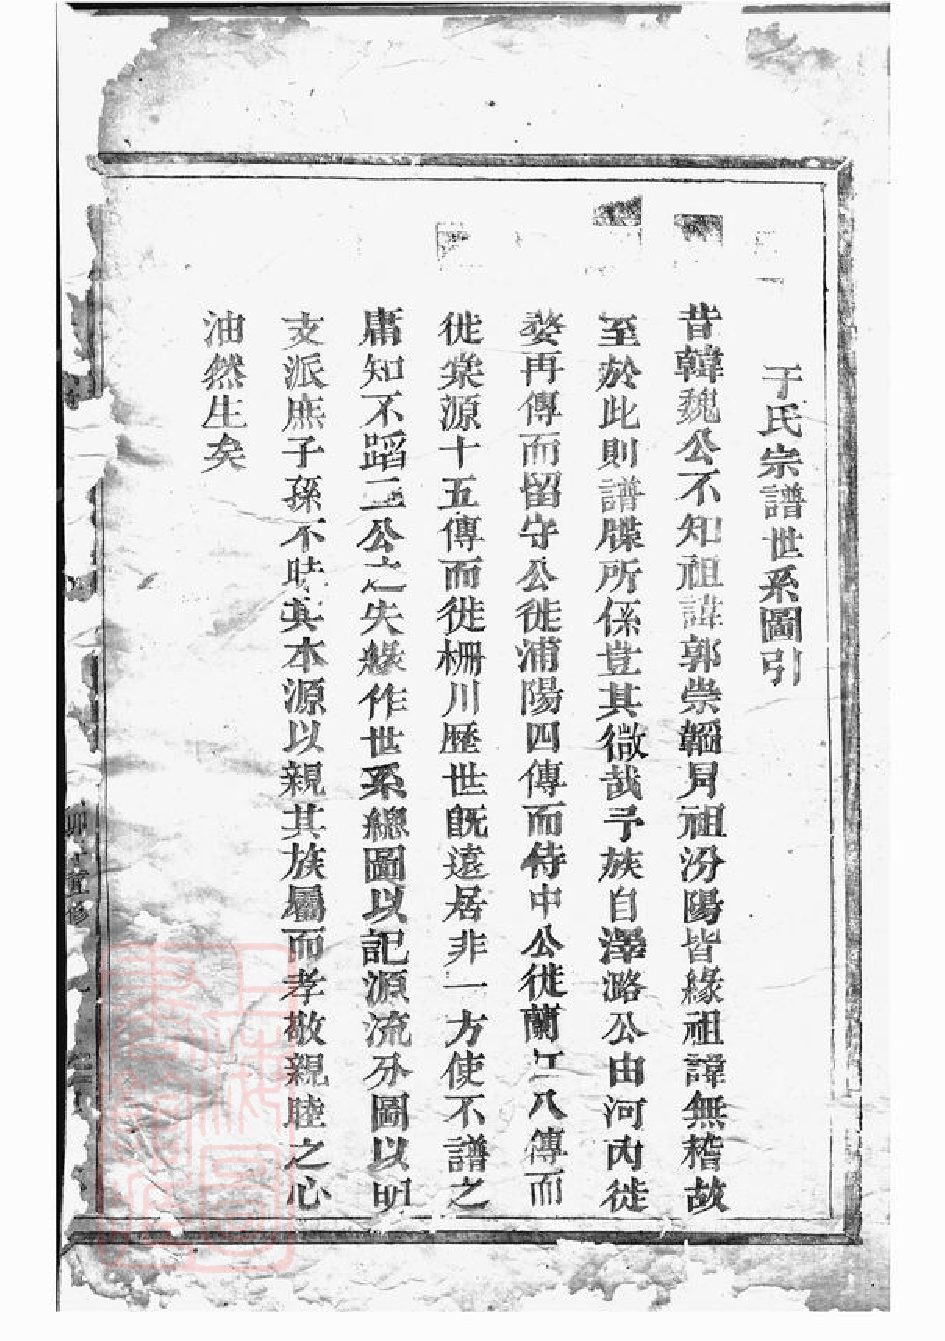 于氏宗譜世系圖引
昔韓魏公不知祖諱郭崇韜拜祖汾陽皆緣祖諱無稽故
至於此則譜牒所係豈其微哉予族自澤潞公由河內徙
婺再傳而留守公徙浦陽四傳而侍中公徙蘭江八傳而
徙棠源十五傳而徙柵川歷世旣遠居非一方使不譜之
庸知不蹈二公之失緣作世系總圖以記源流分圖以明
支派庶子孫不昧其本源以親其族屬而孝敬親睦之心
油然生矣
卯重修